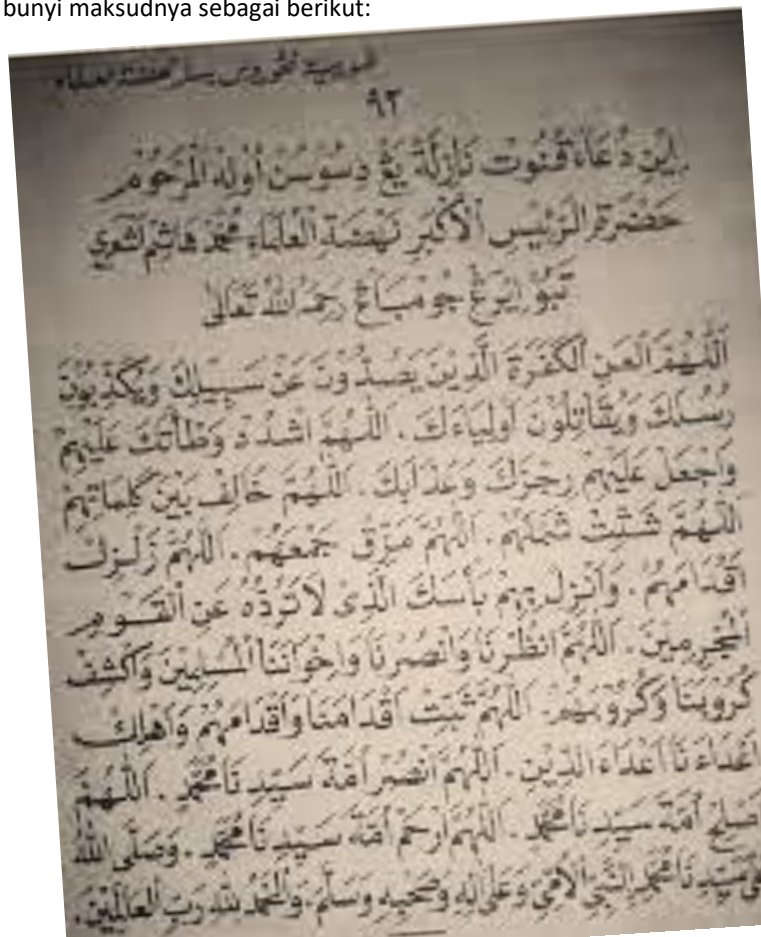 bunyi maksudnya sebagai berikut:
٩٢
اِيْنِ دُعَاءْ قُنُوتْ نَازِلَةْ يَڠْ دِسُوسُنْ أُولِهْ الْمَرْحُوْمْ
حَضْرَةِ الرَّئِيسِ الْأَكْبَرِ نَهْضَةِ الْعُلَمَاءِ مُحَمَّدْ هَاشِمْ اَشْعَرِي
تَبُوْ اِيْرَڠْ جُوْمْبَاڠْ رَحِمَهُ اللهُ تَعَالَى
اَللّٰهُمَّ الْعَنِ الْكَفَرَةَ الَّذِيْنَ يَصُدُّوْنَ عَنْ سَبِيْلِكَ وَيُكَذِّبُوْنَ
رُسُلَكَ وَيُقَاتِلُوْنَ اَوْلِيَاءَكَ . اَللّٰهُمَّ اشْدُدْ وَطْأَتَكَ عَلَيْهِمْ
وَاجْعَلْ عَلَيْهِمْ رِجْزَكَ وَعَذَابَكَ . اَللّٰهُمَّ خَالِفْ بَيْنَ كَلِمَاتِهِمْ
اَللّٰهُمَّ شَتِّتْ شَمْلَهُمْ . اَللّٰهُمَّ مَزِّقْ جَمْعَهُمْ . اَللّٰهُمَّ زَلْزِلْ
اَقْدَامَهُمْ . وَاَنْزِلْ بِهِمْ بَأْسَكَ الَّذِى لَاتَرُدُّهُ عَنِ الْقَوْمِ
الْمُجْرِمِيْنَ . اَللّٰهُمَّ انْظُرْنَا وَانْصُرْنَا وَاِخْوَانَنَا الْمُسْلِمِيْنَ وَاكْشِفْ
كُرُوْبَنَا وَكُرُوْبَهُمْ . اَللّٰهُمَّ ثَبِّتْ اَقْدَامَنَا وَاَقْدَامَهُمْ وَاَهْلِكْ
اَعْدَاءَنَا اَعْدَاءَ الدِّيْنِ . اَللّٰهُمَّ انْصُرْ اُمَّةَ سَيِّدِنَا مُحَمَّدٍ . اَللّٰهُمَّ
اَصْلِحْ اُمَّةَ سَيِّدِنَا مُحَمَّدٍ . اَللّٰهُمَّ ارْحَمْ اُمَّةَ سَيِّدِنَا مُحَمَّدٍ . وَصَلَّى اللهُ
عَلٰى سَيِّدِنَا مُحَمَّدٍ النَّبِيِّ الْاُمِّيِّ وَعَلٰى اٰلِهِ وَصَحْبِهِ وَسَلَّمَ . وَالْحَمْدُ لِلّٰهِ رَبِّ الْعَالَمِيْنَ .